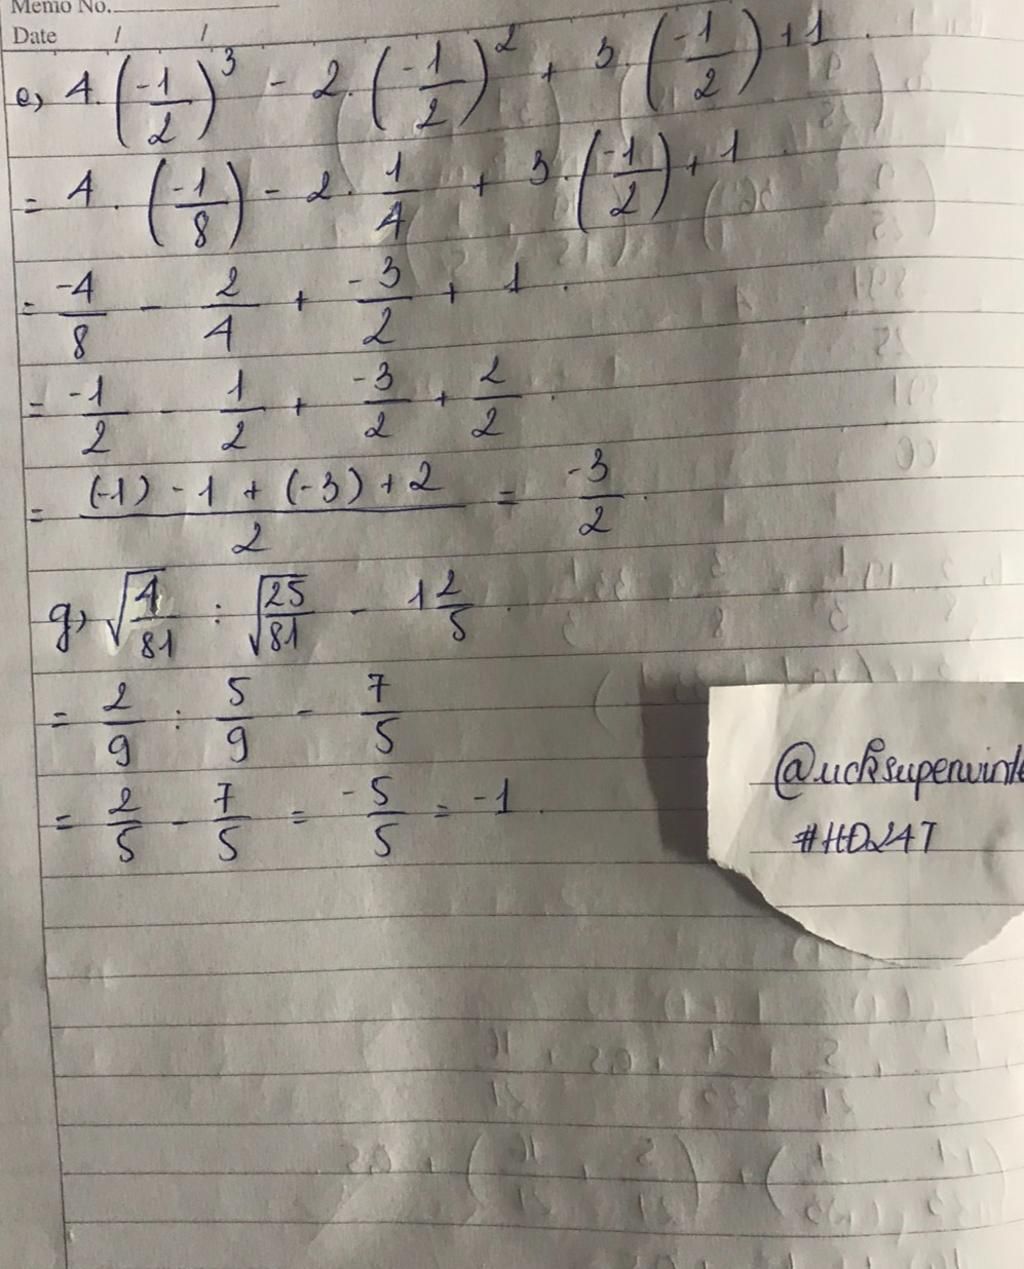 Memo No.
Date / /
e, 4.(-1/2)^3 - 2.(-1/2)^2 + 3.(-1/2) + 1.
= 4.(-1/8) - 2.1/4 + 3.(-1/2) + 1.
= -4/8 - 2/4 + -3/2 + 1.
= -1/2 - 1/2 + -3/2 + 2/2.
= (-1) - 1 + (-3) + 2 / 2 = -3/2.
g, √4/81 : √25/81 - 1 2/5.
= 2/9 : 5/9 - 7/5
= 2/5 - 7/5 = -5/5 = -1.
#HD247